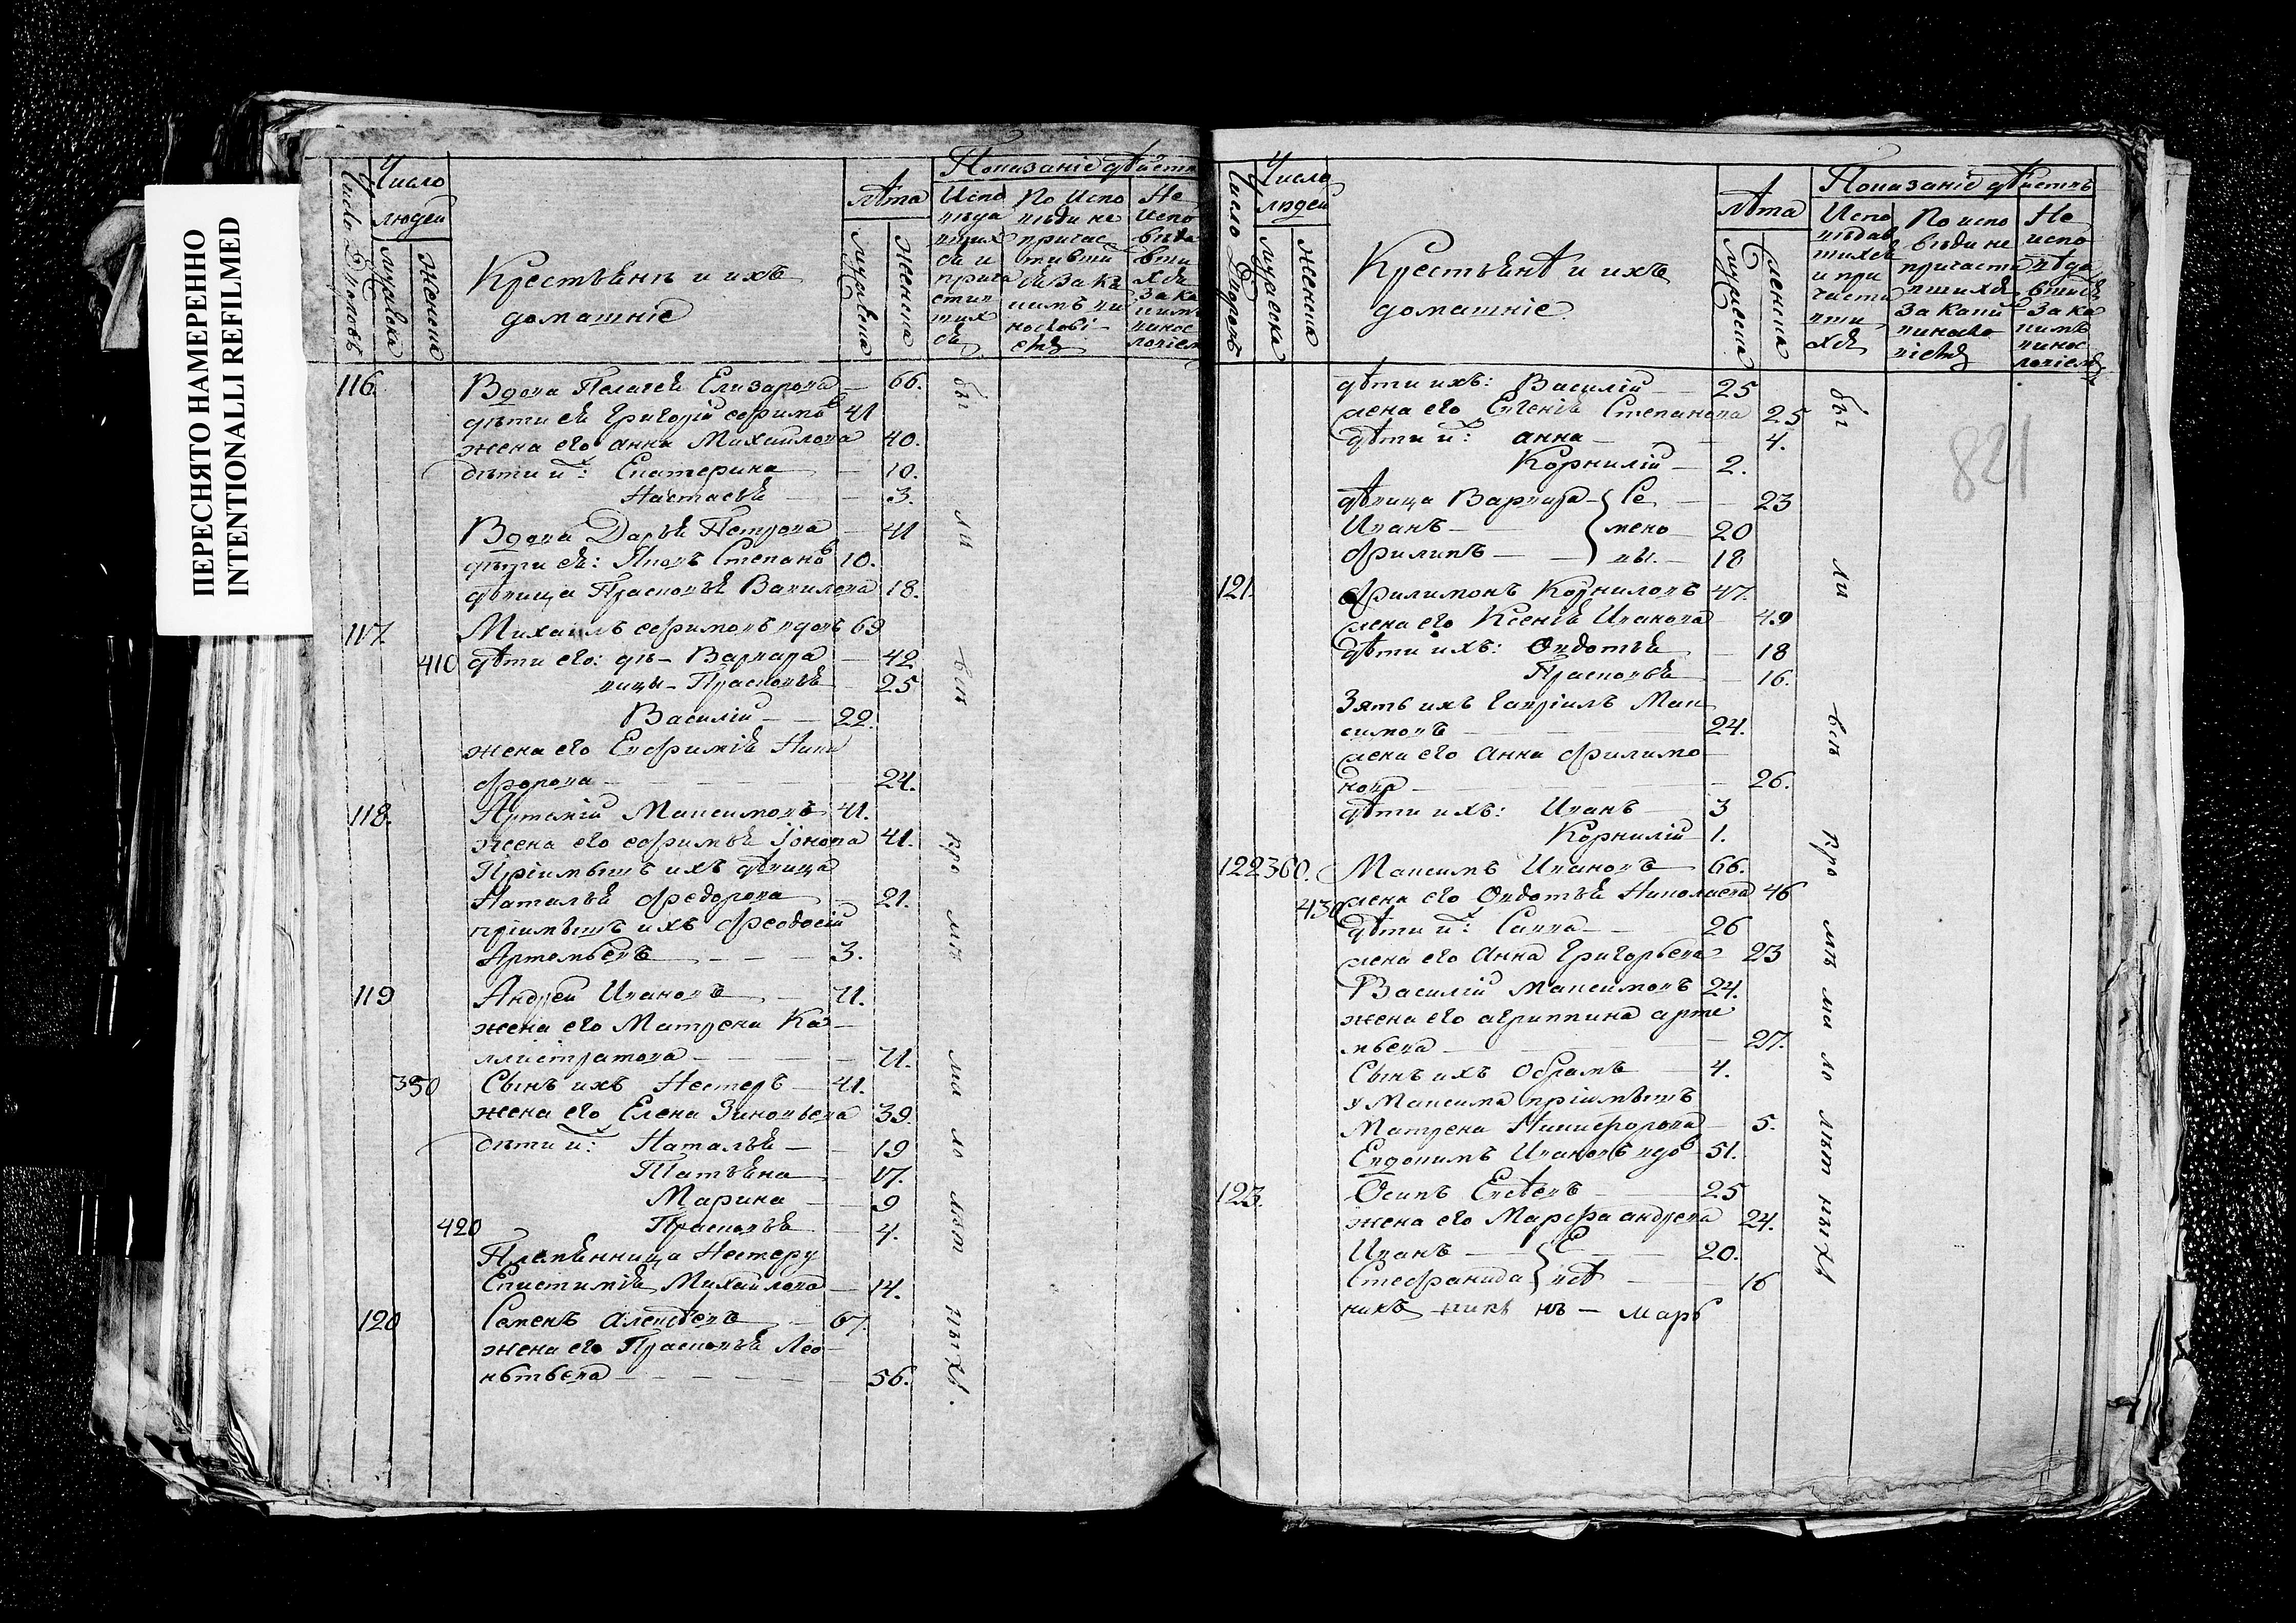 ПЕРЕСНЯТО НАМЕРЕННО
INTENTIONALLI REFILMED
Число Дворовъ
Число людей
мужеска
женска
Крестьяне и ихъ
домашніе
Лѣта
мужеска
женска
Показаніе дѣйств
Испо
вѣда
вших
ся и
прича
стив
ших
ся
По испо
вѣди не
причас
тивши
ся за ка
кимъ ви
нослові
емъ
Не
испо
вѣда
вши
хся
за ка
кимъ
винос
ловіем
116. Вдова Пелагея Елизарова — 66.
дѣти ея Григорій Ефимовъ 41
жена его Анна Михайлова 40.
дѣти их: Екатерина — 10.
Настасья — 3.
Вдова Дарья Петрова — 41
дѣти ея: Яковъ Степановъ 10.
дѣвица Прасковья Вавилова 18.
117. Михаилъ Ефимовъ вдовъ 69
410 дѣти его: дѣ- Варвара — 42
вицы - Прасковья — 25
Василій — 22.
жена его Евфимія Ники
форова — 24.
118. Артемій Максимовъ 41.
жена его Ефимья Іонова 41.
Пріимышъ ихъ дѣвица
Наталья Федорова — 21.
пріимышъ ихъ Феодосій
Артемьевъ — 3.
119 Андрей Ивановъ — 71.
жена его Матрена Ка-
ллистратова — 71.
350 Сынъ ихъ Нестеръ — 41.
жена его Елена Зиновьева 39.
дѣти их: Наталья — 19
Татьяна 17.
Марина — 9
420 Прасковья 4.
Племянница Нестеру
Епистимія Михайлова — 14.
120 Семенъ Алексѣевъ — 67.
жена его Прасковья Лео-
нтьева — 56.
бы
ли
всѣ
кро
мѣ
ма
ло
лѣт
ныхъ.
Число Дворовъ
Число людей
мужеска
женска
Крестьянѣ и ихъ
домашніе
Лѣта
мужеска
женска
Показаніе дѣйствъ
Испо
вѣдав
шихся
и при
части
вши
хся
По испо
вѣди не
причасти
вшихся
за каки
Не
испо
вѣда
вшихся
за ка
кимъ
винос
ловіемъ
821
дѣти ихъ: Василій — 25
жена его Евгенія Степанова 25
дѣти их: Анна — 4.
Корнилій — 2.
дѣвица Варвара { Се — 23
Иванъ — { мено — 20
Филипъ — { вы. — 18
121. Филимонъ Корниловъ 47.
жена его Ксенія Иванова 49
дѣти ихъ: Овдотья — 18
Прасковья — 16.
Зять ихъ Гавріилъ Мак
симовъ — 24.
жена его Анна Филимо
нова — 26.
дѣти ихъ: Иванъ — 3
Корнилій 1.
122 360. Максимъ Ивановъ — 66.
430 жена его Овдотья Николаева 46
дѣти их: Савва — 26
жена его Анна Григорьева 23
Василій Максимовъ 24.
жена его Агриппина Арте
мьева — 27.
Сынъ ихъ Обрамъ — 4.
у Максима пріимышъ
Матрена Никифорова — 5.
Евдокимъ Ивановъ вдов 51.
123. Осипъ Евсѣевъ — 25
жена его Марфа Андреева 24.
Иванъ — { Е — 20.
Стефанида { всѣ — 16
марѣ
бы
ли
всѣ
кро
мѣ
ма
ло
лѣт
ныхъ